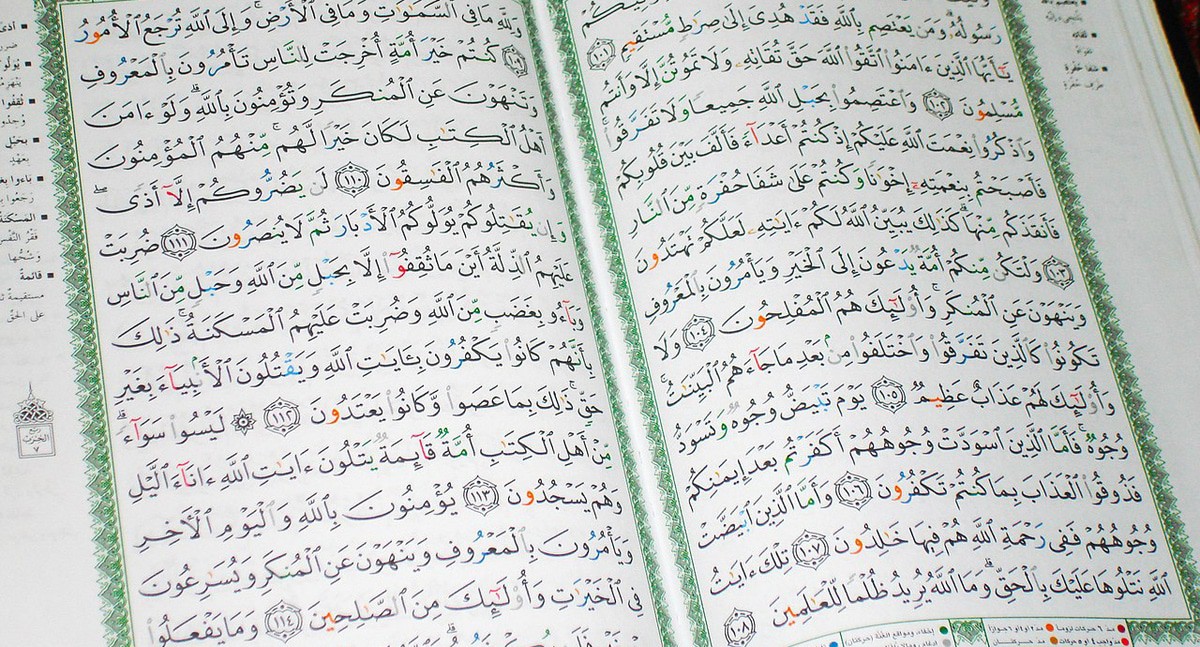 رَسُولُهُۥۗ وَمَن يَعْتَصِم بِٱللَّهِ فَقَدْ هُدِىَ إِلَىٰ صِرَٰطٍ مُّسْتَقِيمٍ ١٠١
يَٰٓأَيُّهَا ٱلَّذِينَ ءَامَنُوا۟ ٱتَّقُوا۟ ٱللَّهَ حَقَّ تُقَاتِهِۦ وَلَا تَمُوتُنَّ إِلَّا وَأَنتُم
مُّسْلِمُونَ ١٠٢ وَٱعْتَصِمُوا۟ بِحَبْلِ ٱللَّهِ جَمِيعًا وَلَا تَفَرَّقُوا۟ۚ
وَٱذْكُرُوا۟ نِعْمَتَ ٱللَّهِ عَلَيْكُمْ إِذْ كُنتُمْ أَعْدَآءً فَأَلَّفَ بَيْنَ قُلُوبِكُمْ
فَأَصْبَحْتُم بِنِعْمَتِهِۦٓ إِخْوَٰنًا وَكُنتُمْ عَلَىٰ شَفَا حُفْرَةٍ مِّنَ ٱلنَّارِ
فَأَنقَذَكُم مِّنْهَاۗ كَذَٰلِكَ يُبَيِّنُ ٱللَّهُ لَكُمْ ءَايَٰتِهِۦ لَعَلَّكُمْ تَهْتَدُونَ
١٠٣ وَلْتَكُن مِّنكُمْ أُمَّةٌ يَدْعُونَ إِلَى ٱلْخَيْرِ وَيَأْمُرُونَ بِٱلْمَعْرُوفِ
وَيَنْهَوْنَ عَنِ ٱلْمُنكَرِۚ وَأُو۟لَٰٓئِكَ هُمُ ٱلْمُفْلِحُونَ ١٠٤ وَلَا
تَكُونُوا۟ كَٱلَّذِينَ تَفَرَّقُوا۟ وَٱخْتَلَفُوا۟ مِنۢ بَعْدِ مَا جَآءَهُمُ ٱلْبَيِّنَٰتُۚ
وَأُو۟لَٰٓئِكَ لَهُمْ عَذَابٌ عَظِيمٌ ١٠٥ يَوْمَ تَبْيَضُّ وُجُوهٌ وَتَسْوَدُّ
وُجُوهٌۚ فَأَمَّا ٱلَّذِينَ ٱسْوَدَّتْ وُجُوهُهُمْ أَكَفَرْتُم بَعْدَ إِيمَٰنِكُمْ
فَذُوقُوا۟ ٱلْعَذَابَ بِمَا كُنتُمْ تَكْفُرُونَ ١٠٦ وَأَمَّا ٱلَّذِينَ ٱبْيَضَّتْ
وُجُوهُهُمْ فَفِى رَحْمَةِ ٱللَّهِ هُمْ فِيهَا خَٰلِدُونَ ١٠٧ تِلْكَ ءَايَٰتُ
ٱللَّهِ نَتْلُوهَا عَلَيْكَ بِٱلْحَقِّۗ وَمَا ٱللَّهُ يُرِيدُ ظُلْمًا لِّلْعَٰلَمِينَ ١٠٨
شفا حفرة
وَلِلَّهِ مَا فِى ٱلسَّمَٰوَٰتِ وَمَا فِى ٱلْأَرْضِۚ وَإِلَى ٱللَّهِ تُرْجَعُ ٱلْأُمُورُ
١٠٩ كُنتُمْ خَيْرَ أُمَّةٍ أُخْرِجَتْ لِلنَّاسِ تَأْمُرُونَ بِٱلْمَعْرُوفِ
وَتَنْهَوْنَ عَنِ ٱلْمُنكَرِ وَتُؤْمِنُونَ بِٱللَّهِۗ وَلَوْ ءَامَنَ
أَهْلُ ٱلْكِتَٰبِ لَكَانَ خَيْرًا لَّهُمۚ مِّنْهُمُ ٱلْمُؤْمِنُونَ
وَأَكْثَرُهُمُ ٱلْفَٰسِقُونَ ١١٠ لَن يَضُرُّوكُمْ إِلَّآ أَذًىۖ
وَإِن يُقَٰتِلُوكُمْ يُوَلُّوكُمُ ٱلْأَدْبَارَ ثُمَّ لَا يُنصَرُونَ ١١١ ضُرِبَتْ
عَلَيْهِمُ ٱلذِّلَّةُ أَيْنَ مَا ثُقِفُوٓا۟ إِلَّا بِحَبْلٍ مِّنَ ٱللَّهِ وَحَبْلٍ مِّنَ ٱلنَّاسِ
وَبَآءُو بِغَضَبٍ مِّنَ ٱللَّهِ وَضُرِبَتْ عَلَيْهِمُ ٱلْمَسْكَنَةُۚ ذَٰلِكَ
بِأَنَّهُمْ كَانُوا۟ يَكْفُرُونَ بِـَٔايَٰتِ ٱللَّهِ وَيَقْتُلُونَ ٱلْأَنۢبِيَآءَ بِغَيْرِ
حَقٍّۚ ذَٰلِكَ بِمَا عَصَوا۟ وَّكَانُوا۟ يَعْتَدُونَ ١١٢ ۞ لَيْسُوا۟ سَوَآءًۗ
مِّنْ أَهْلِ ٱلْكِتَٰبِ أُمَّةٌ قَآئِمَةٌ يَتْلُونَ ءَايَٰتِ ٱللَّهِ ءَانَآءَ ٱلَّيْلِ
وَهُمْ يَسْجُدُونَ ١١٣ يُؤْمِنُونَ بِٱللَّهِ وَٱلْيَوْمِ ٱلْءَاخِرِ
وَيَأْمُرُونَ بِٱلْمَعْرُوفِ وَيَنْهَوْنَ عَنِ ٱلْمُنكَرِ وَيُسَٰرِعُونَ
فِى ٱلْخَيْرَٰتِ وَأُو۟لَٰٓئِكَ مِنَ ٱلصَّٰلِحِينَ ١١٤ وَمَا يَفْعَلُوا۟
ثقفوا
بحبل
بعهد
المسكنة
قائمة
مستقيمة
على الحق
ربع
الحزب
٧